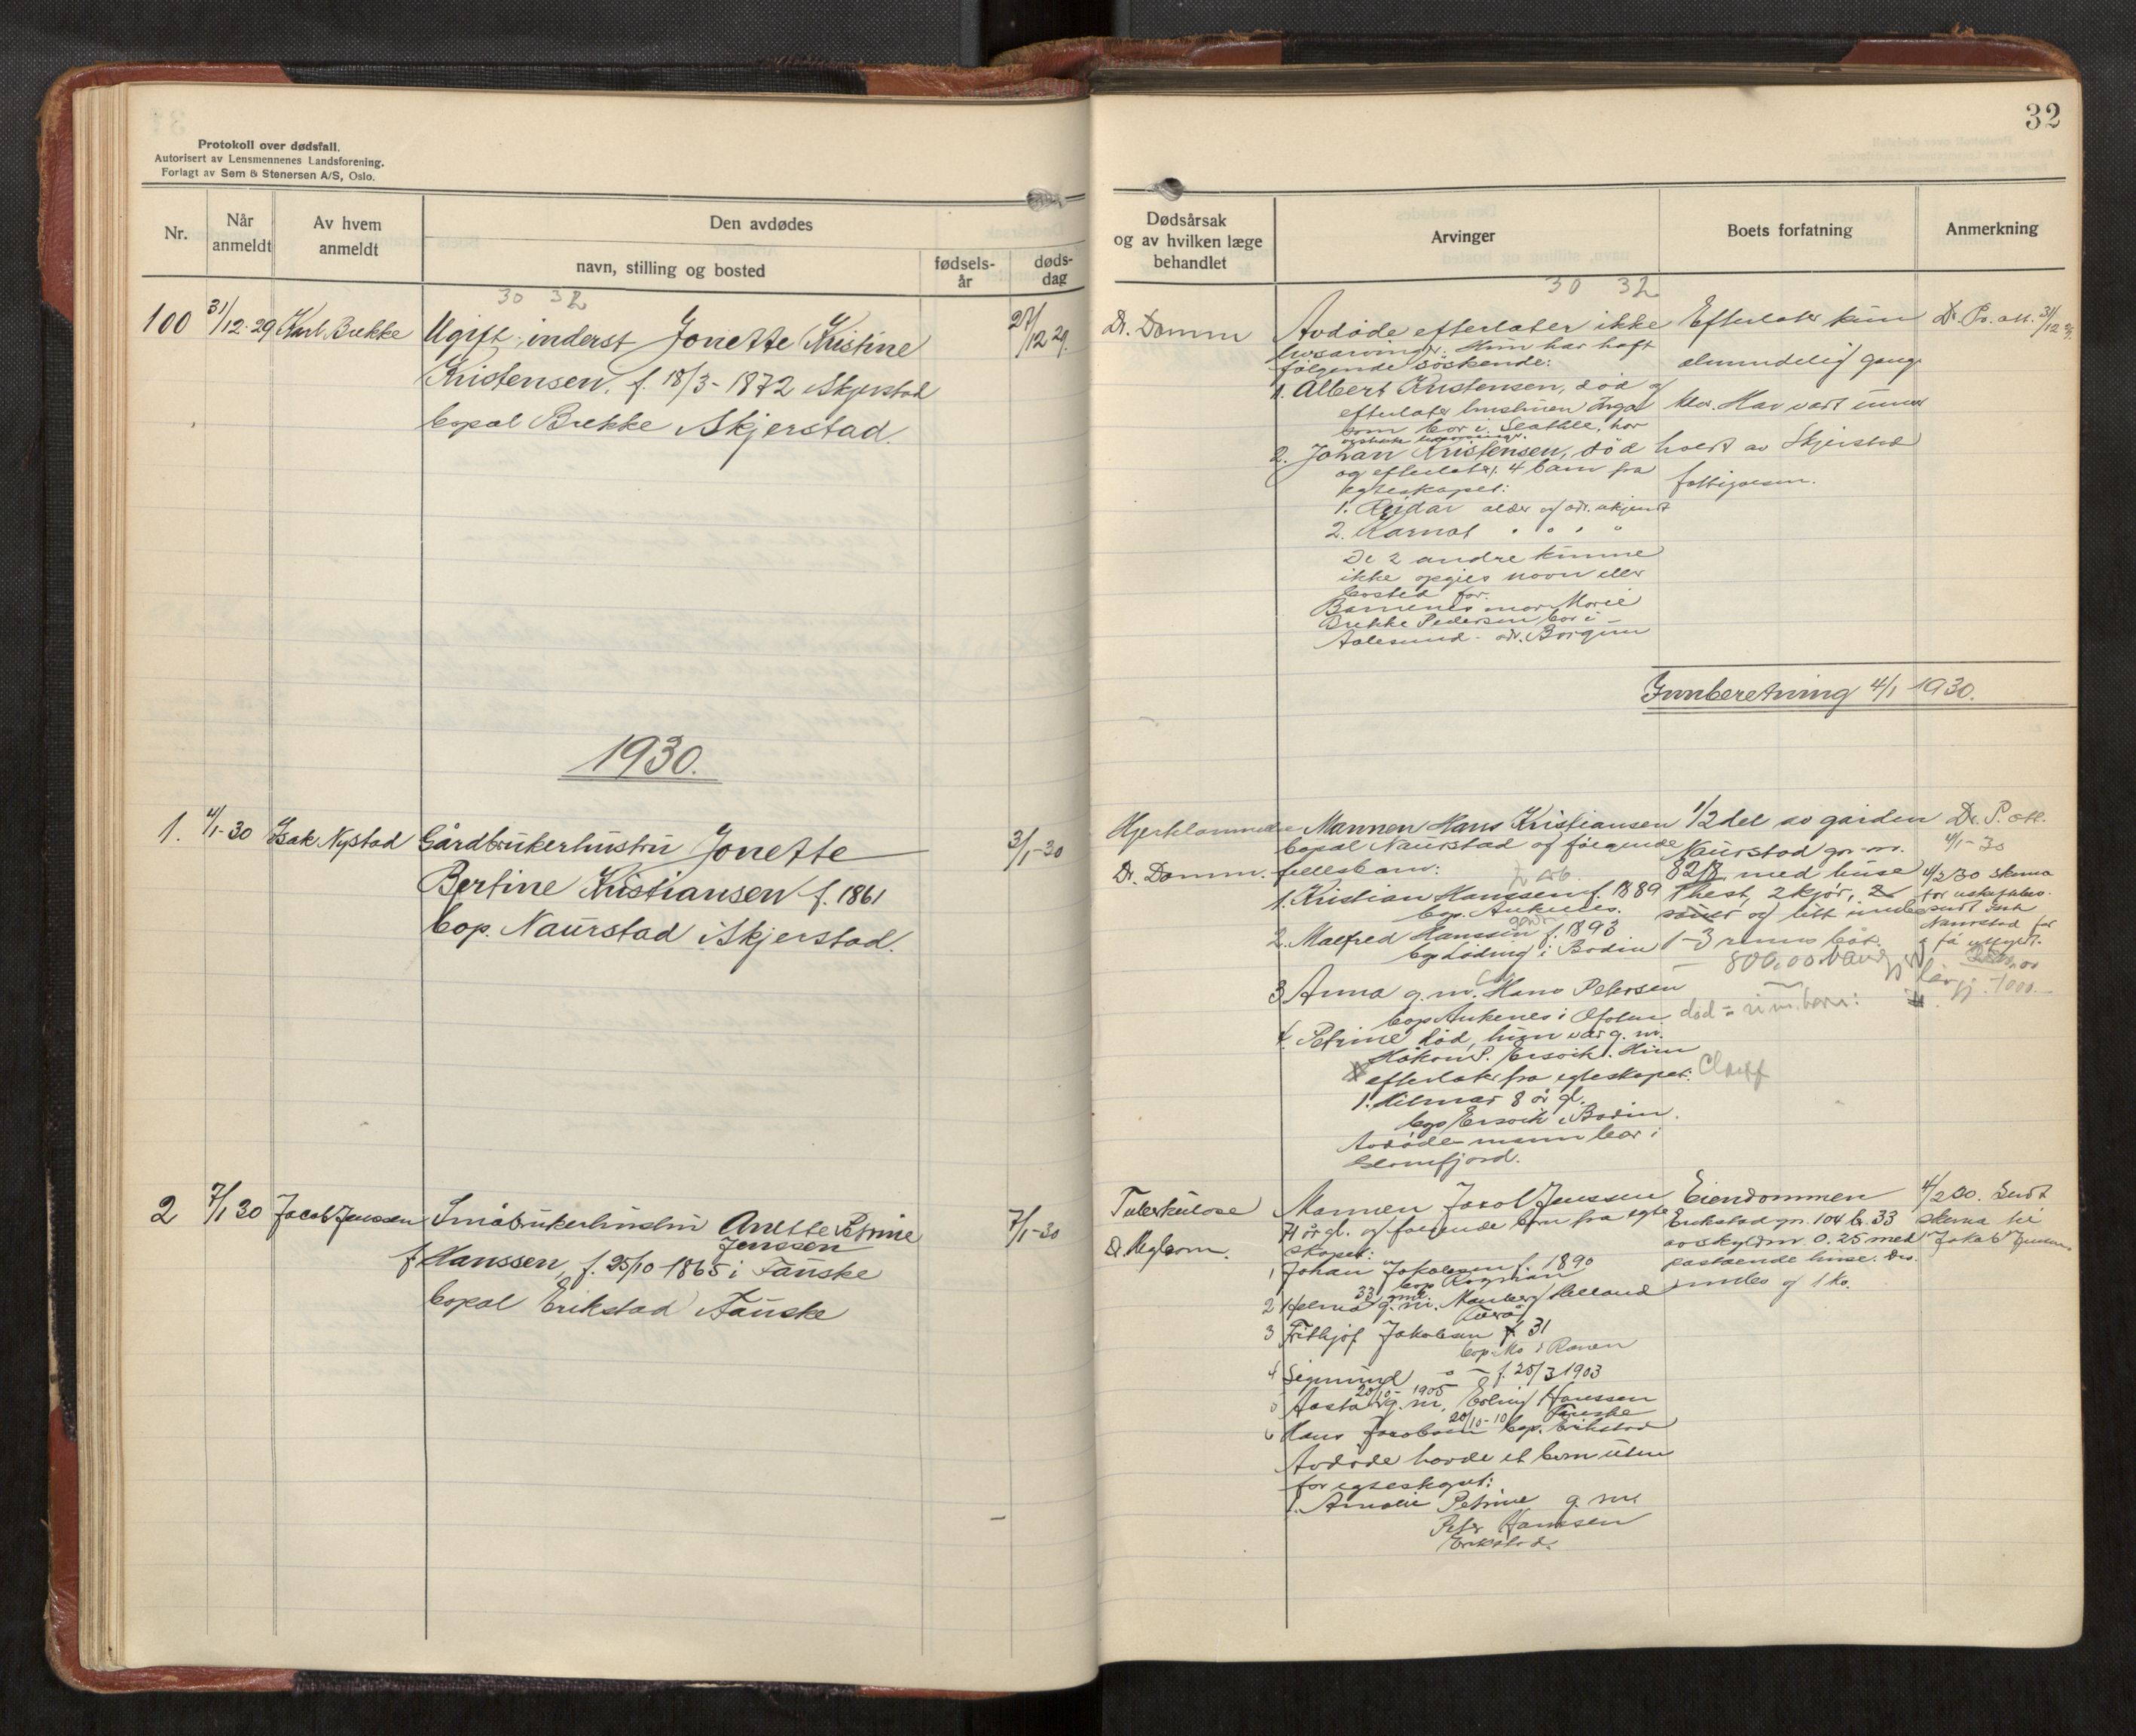 Protokoll over dødsfall.
Autorisert av Lensmennenes Landsforening.
Forlagt av Sem & Stenersen A/S, Oslo.
Nr.
Når
anmeldt
Av hvem
anmeldt
Den avdødes
navn, stilling og bosted
fødsels-
år
døds-
dag
30 32
100 31/12-29 Karl Brekke Ugift, inderst Jonette Kristine 27/12 29.
Kristensen, f. 18/3-1872 i Skjerstad
bopal Brekke i Skjerstad.
1930.
1. 4/1-30 Isak Nystad Gårdbrukerhustru Jonette 3/1-30
Bertine Kristiansen f. 1861
bop. Naurstad i Skjerstad.
2 7/1 30 Jacob Jenssen Småbrukerhustru Anette Petrine 7/1-30
Jenssen
f. Hanssen, f. 25/10 1865 i Fauske
bopal Erikstad i Fauske
32
Dødsårsak
og av hvilken læge
behandlet
Arvinger
Boets forfatning
Anmerkning
30 32
Dr. Damm
Avdøde efterlater ikke
livsarvinger. Hun har haft
følgende søskende:
1. Albert Kristensen, død og
efterlater hustruen Inga
som bor i Seattle, har
2. Johan Kristensen, død
og efterlater 4 barn fra
egteskapet:
1. Reidar alder og adr. ukjent
2. Karnot " " " "
De 2 andre kunne
ikke opgies navn eller
bosted for.
Barnenes mor Marie
Brekke Pedersen bor i
Aalesund - adr. Borgund
Efterlater kun
almindelig gang
klær. Har vært under
hold av Skjerstad
fattigvesen.
Dr. Po. att. 31/12 29.
Innberetning 4/1 1930.
Hjertelammelse
Dr. Damm.
Mannen Hans Kristiansen
bopal Naurstad og følgende
fellesbarn:
1. Kristian Hanssen f. 1889
bop. Ankenes.
2. Malfred Hanssen f. 1893
bop Løding i Bodin
3 Anna g.m. Hans Petersen
bop Ankenes i Ofoten
4. Petrine død, hun var g. m.
Håkon P. Ersvik. Hun
efterlater fra egteskapet:
1. Hilmar 8 år gl.
bop Ersvik i Bodin.
Avdøde mann bor i
Glomfjord.
1/2 del av gården
Naurstad gr. nr.
82/8 med huse
1 hest, 2 kjør, 2
sauer og litt innbo
1-3 roms båt.
800,00
død =
Dr. P. att.
4/1-30
4/2 30 skema
Naurstad for
å få utfyldt.
1000.-
Tuberkulose
Mannen Jacob Jenssen
71 år gl. og følgende barn fra egte
skapet:
1 Johan Jakobsen f. 1890
2 Helma g.m. Helland
33
3 Frithjof Jakobsen 31
bop. Mo i Ranen
4 Sigmund " - f. 25/3 1903
20/10-1905
5 Aasta g.m. Erling Hanssen
Fauske
20/10-10
6 Hans Jacobsen bop. Erikstad
Avdøde havde et barn uten
for egteskapet:
1. Amalie Petrine g. m.
Peter Hanssen
Erikstad.
Eiendommen
Erikstad gn. 104 b. 33
av skyldm. 0.25 med
påstående huse. Div.
innbo og 1 ko.
4/2 30. Sendt
skema til
Jakob Jenssen